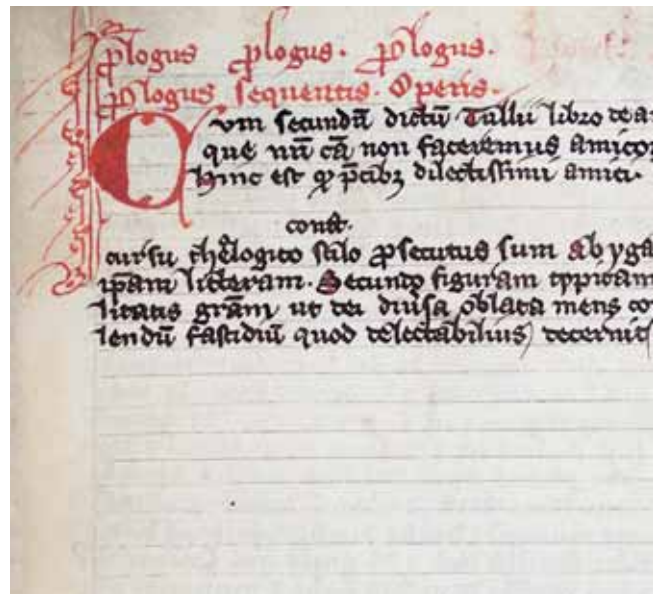 ꝓlogus ꝓlogus. ꝓlogus.
ꝓlogus sequentis. Operis.
Cvm secundū dictū Tullii libro de a
que nr̄i cā non faceremus amicor
hinc est ꝙ p̄cibꝫ dilectissimi amici.
cursu theologico stilo ꝓsecutus sum Abyga
ip̄am litteram. Secundo figuram typicam
litatis grām ut rei diuisa oblata mens co
lendū fastidiū quod delectabilius decernit